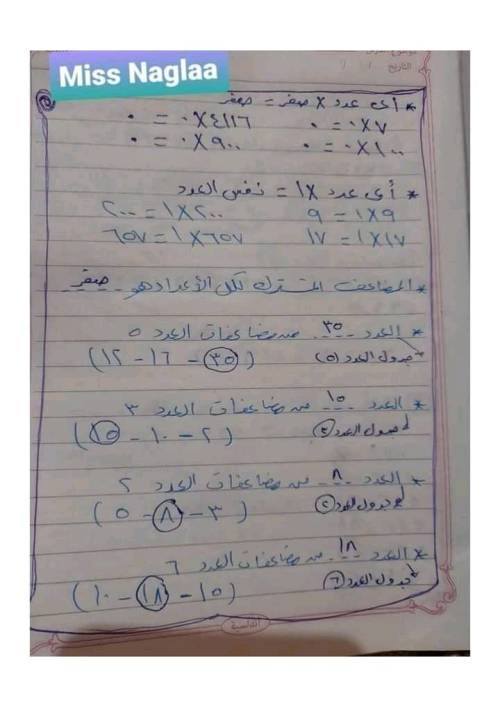 Miss Naglaa
التاريخ
* أى عدد X صفر = صفر
٧ X ٠ = ٠ ٤١١٦ X ٠ = ٠
١٠٠ X ٠ = ٠ ٩٠٠ X ٠ = ٠
* أى عدد X ١ = نفس العدد
٩ X ١ = ٩ ٢٠٠ X ١ = ٢٠٠
١٧ X ١ = ١٧ ٦٥٧ X ١ = ٦٥٧
* المضاعف المشترك لكل الأعداد هو صفر
* العدد ٣٥ من مضاعفات العدد ٥
جدول العدد (٥) (٣٥ - ١٦ - ١٢)
* العدد ١٥ من مضاعفات العدد ٣
جدول العدد ٣ (٢ - ١٠ - ١٥)
* العدد ٨ من مضاعفات العدد ٢
جدول العدد ٢ (٣ - ٨ - ٥)
* العدد ١٨ من مضاعفات العدد ٦
جدول العدد ٦ (١٥ - ١٨ - ١٠)